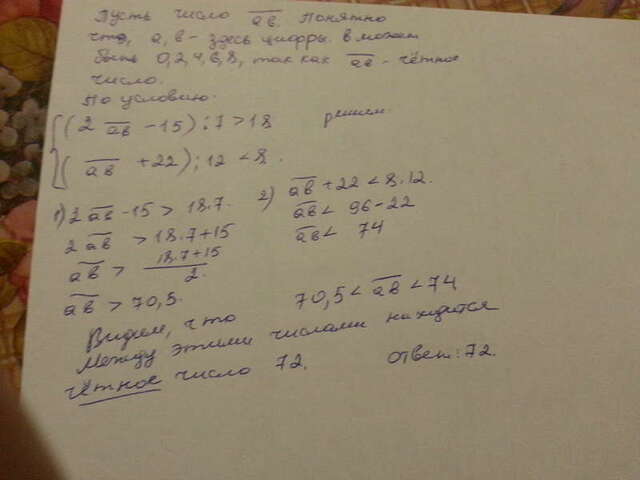 Пусть число ab. Понятно
что, a, b - здесь цифры. b может
быть 0, 2, 4, 6, 8, так как ab - чётное
число.
По условию:
{ (2 ab - 15) : 7 > 18 решим
( ab + 22) : 12 < 8.
1) 2 ab - 15 > 18.7. 2) ab + 22 < 8.12.
2 ab > 18.7 + 15 ab < 96 - 22
ab > 18.7+15 / 2. ab < 74
ab > 70,5. 70,5 < ab < 74
Видим, что
между этими числами находится
чётное число 72. Ответ: 72.